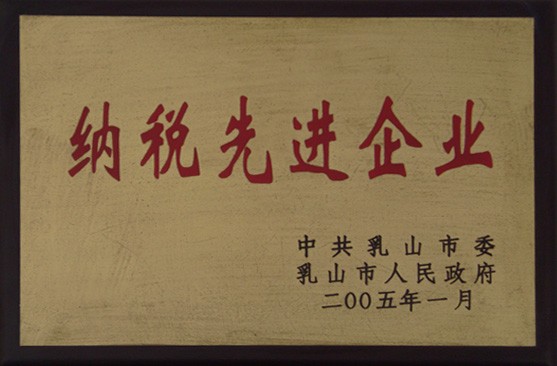 纳税先进企业
中共乳山市委
乳山市人民政府
二00五年一月